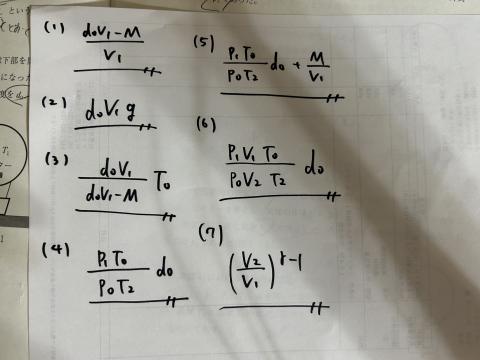 (1) (d₀V₁-M)/V₁
(2) d₀V₁g
(3) d₀V₁/(d₀V₁-M) T₀
(4) P₁T₀/P₀T₂ d₀
(5) P₁T₀/P₀T₂ d₀ + M/V₁
(6) P₁V₁T₀/P₀V₂T₂ d₀
(7) (V₂/V₁)^(γ-1)